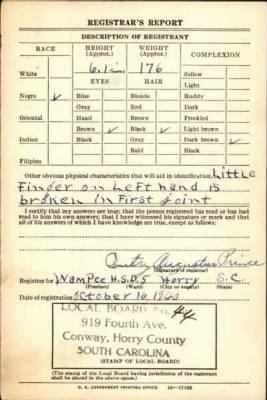 REGISTRAR'S REPORT
DESCRIPTION OF REGISTRANT
RACE HEIGHT (Approx.) WEIGHT (Approx.) COMPLEXION
White 6.1 176 Sallow
EYES HAIR Light
Negro ✓ Blue Blonde Ruddy
Gray Red Dark
Oriental Hazel Brown Freckled
Brown ✓ Black ✓ Light brown
Indian Black Gray Dark brown ✓
Bald Black
Filipino
Other obvious physical characteristics that will aid in identification Little
Finger on Left hand is
broken in First joint
I certify that my answers are true; that the person registered has read or has had
read to him his own answers; that I have witnessed his signature or mark and that
all of his answers of which I have knowledge are true, except as follows:
Augustus Prince
(Signature of registrar)
Registrar for Wampee H.S.D.5 Horry S.C.
(Precinct) (Ward) (City or county) (State)
Date of registration October 16, 1940
LOCAL BOARD No.
919 Fourth Ave.
Conway, Horry County
SOUTH CAROLINA
(STAMP OF LOCAL BOARD)
(The stamp of the Local Board having jurisdiction of the registrant
shall be placed in the above space.)
U. S. GOVERNMENT PRINTING OFFICE 16—17105